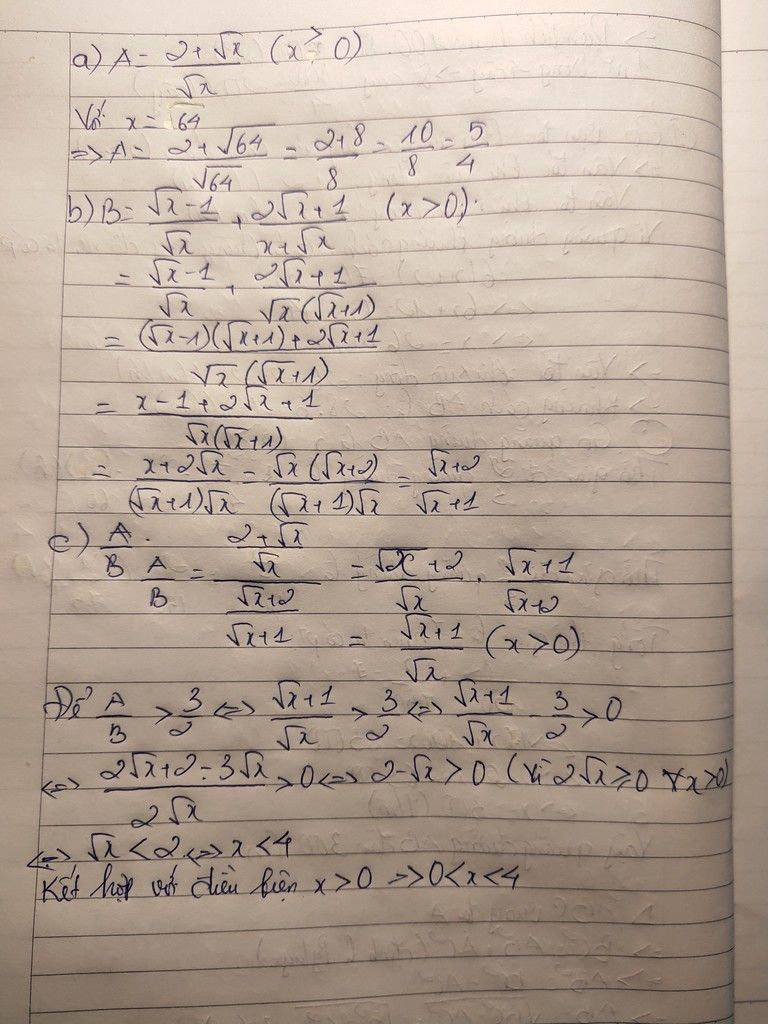 a) A = \frac{2+√x}{√x} (x > 0)
Với x = 64
=> A = \frac{2+√64}{√64} = \frac{2+8}{8} = \frac{10}{8} = \frac{5}{4}
b) B = \frac{√x-1}{√x} + \frac{2√x+1}{x+√x} (x>0).
= \frac{√x-1}{√x} + \frac{2√x+1}{√x(√x+1)}
= \frac{(√x-1)(√x+1)+2√x+1}{√x(√x+1)}
= \frac{x-1+2√x+1}{√x(√x+1)}
= \frac{x+2√x}{(√x+1)√x} = \frac{√x(√x+2)}{(√x+1)√x} = \frac{√x+2}{√x+1}
c) \frac{A}{B}.
\frac{A}{B} = \frac{\frac{2+√x}{√x}}{\frac{√x+2}{√x+1}} = \frac{√x+2}{√x} . \frac{√x+1}{√x+2}
= \frac{√x+1}{√x} (x>0)
Để \frac{A}{B} > \frac{3}{2} <=> \frac{√x+1}{√x} > \frac{3}{2} <=> \frac{√x+1}{√x} - \frac{3}{2} > 0
<=> \frac{2√x+2-3√x}{2√x} > 0 <=> 2-√x > 0 (vì 2√x ≥ 0 ∀x>0)
<=> √x < 2 <=> x < 4
Kết hợp với điều kiện x > 0 => 0 < x < 4